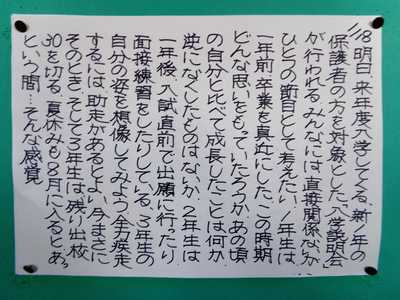 1/18 明日、来年度入学してくる、新1年の
保護者の方を対象とした「入学説明会」
が行われる。みんなには直接関係ないが、
ひとつの節目として考えたい。1年生は、
一年前、卒業を真近にした、この時期
どんな思いをもっていただろうか。あの頃
の自分と比べて成長したことは何か、
逆になくしたものはないか。2年生は
一年後、入試直前で出願に行ったり
面接練習をしたりしている、3年生の
自分の姿を想像してみよう。全力疾走
するには、助走があるとよい。今まさに
そのとき。そして3年生は、残り出校
30を切る。夏休みも8月に入るとあっ
という間…そんな感覚